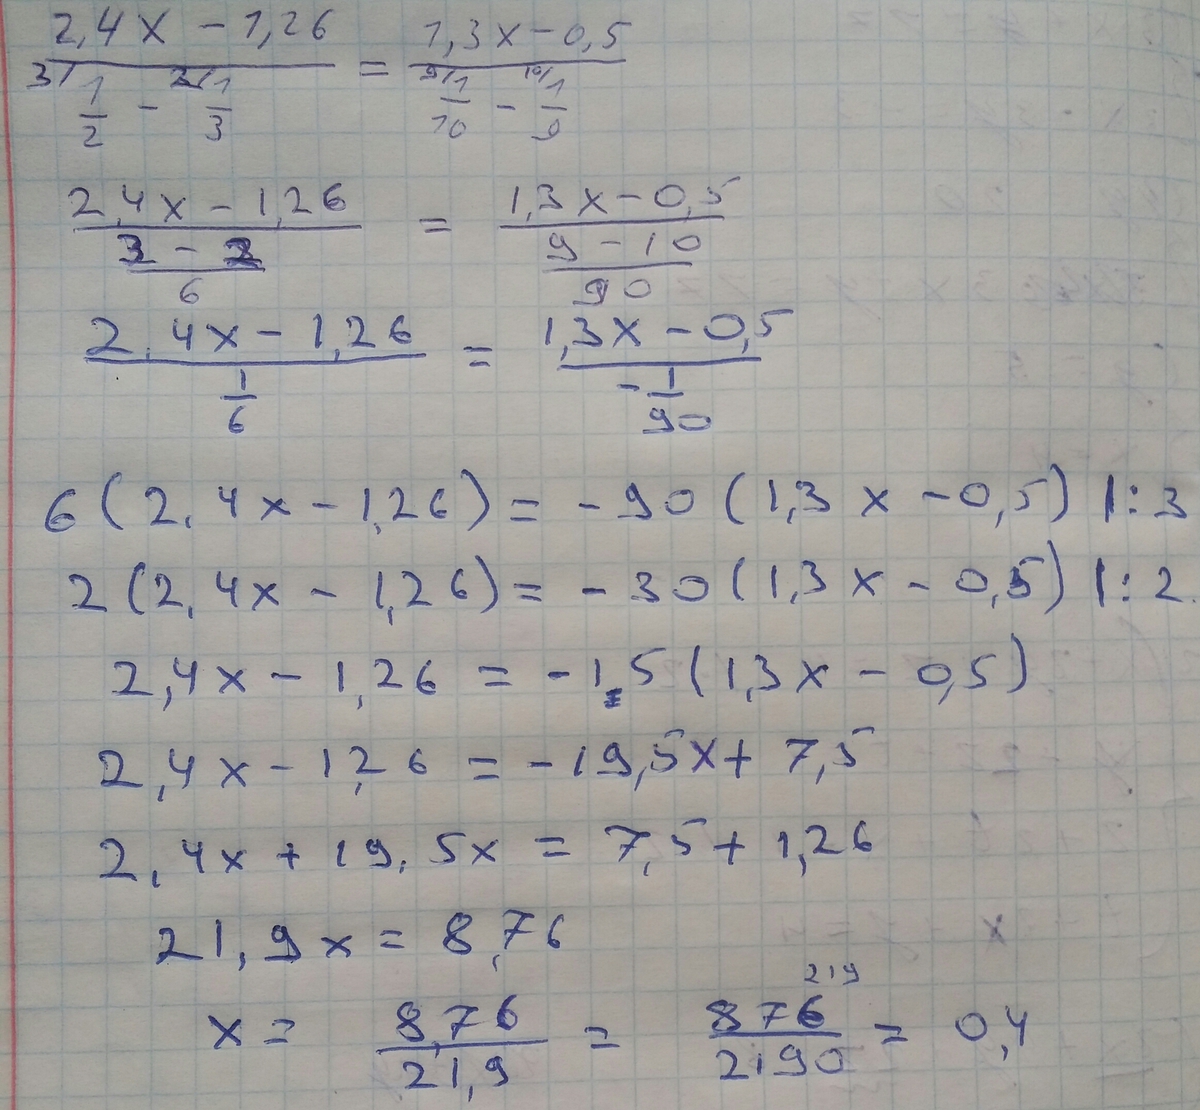 2,4x - 1,26 = 1,3x - 0,5
3/ 1/2 - 2/ 1/3   9/ 1/10 - 10/ 1/9
2,4x - 1,26 = 1,3x - 0,5
3 - 2   9 - 10
6   90
2,4x - 1,26 = 1,3x - 0,5
1/6   - 1/90
6(2,4x - 1,26) = -90(1,3x - 0,5) |:3
2(2,4x - 1,26) = -30(1,3x - 0,5) |:2
2,4x - 1,26 = -15(1,3x - 0,5)
2,4x - 1,26 = -19,5x + 7,5
2,4x + 19,5x = 7,5 + 1,26
21,9x = 8,76
x = 8,76/21,9 = 876/2190 = 0,4
219